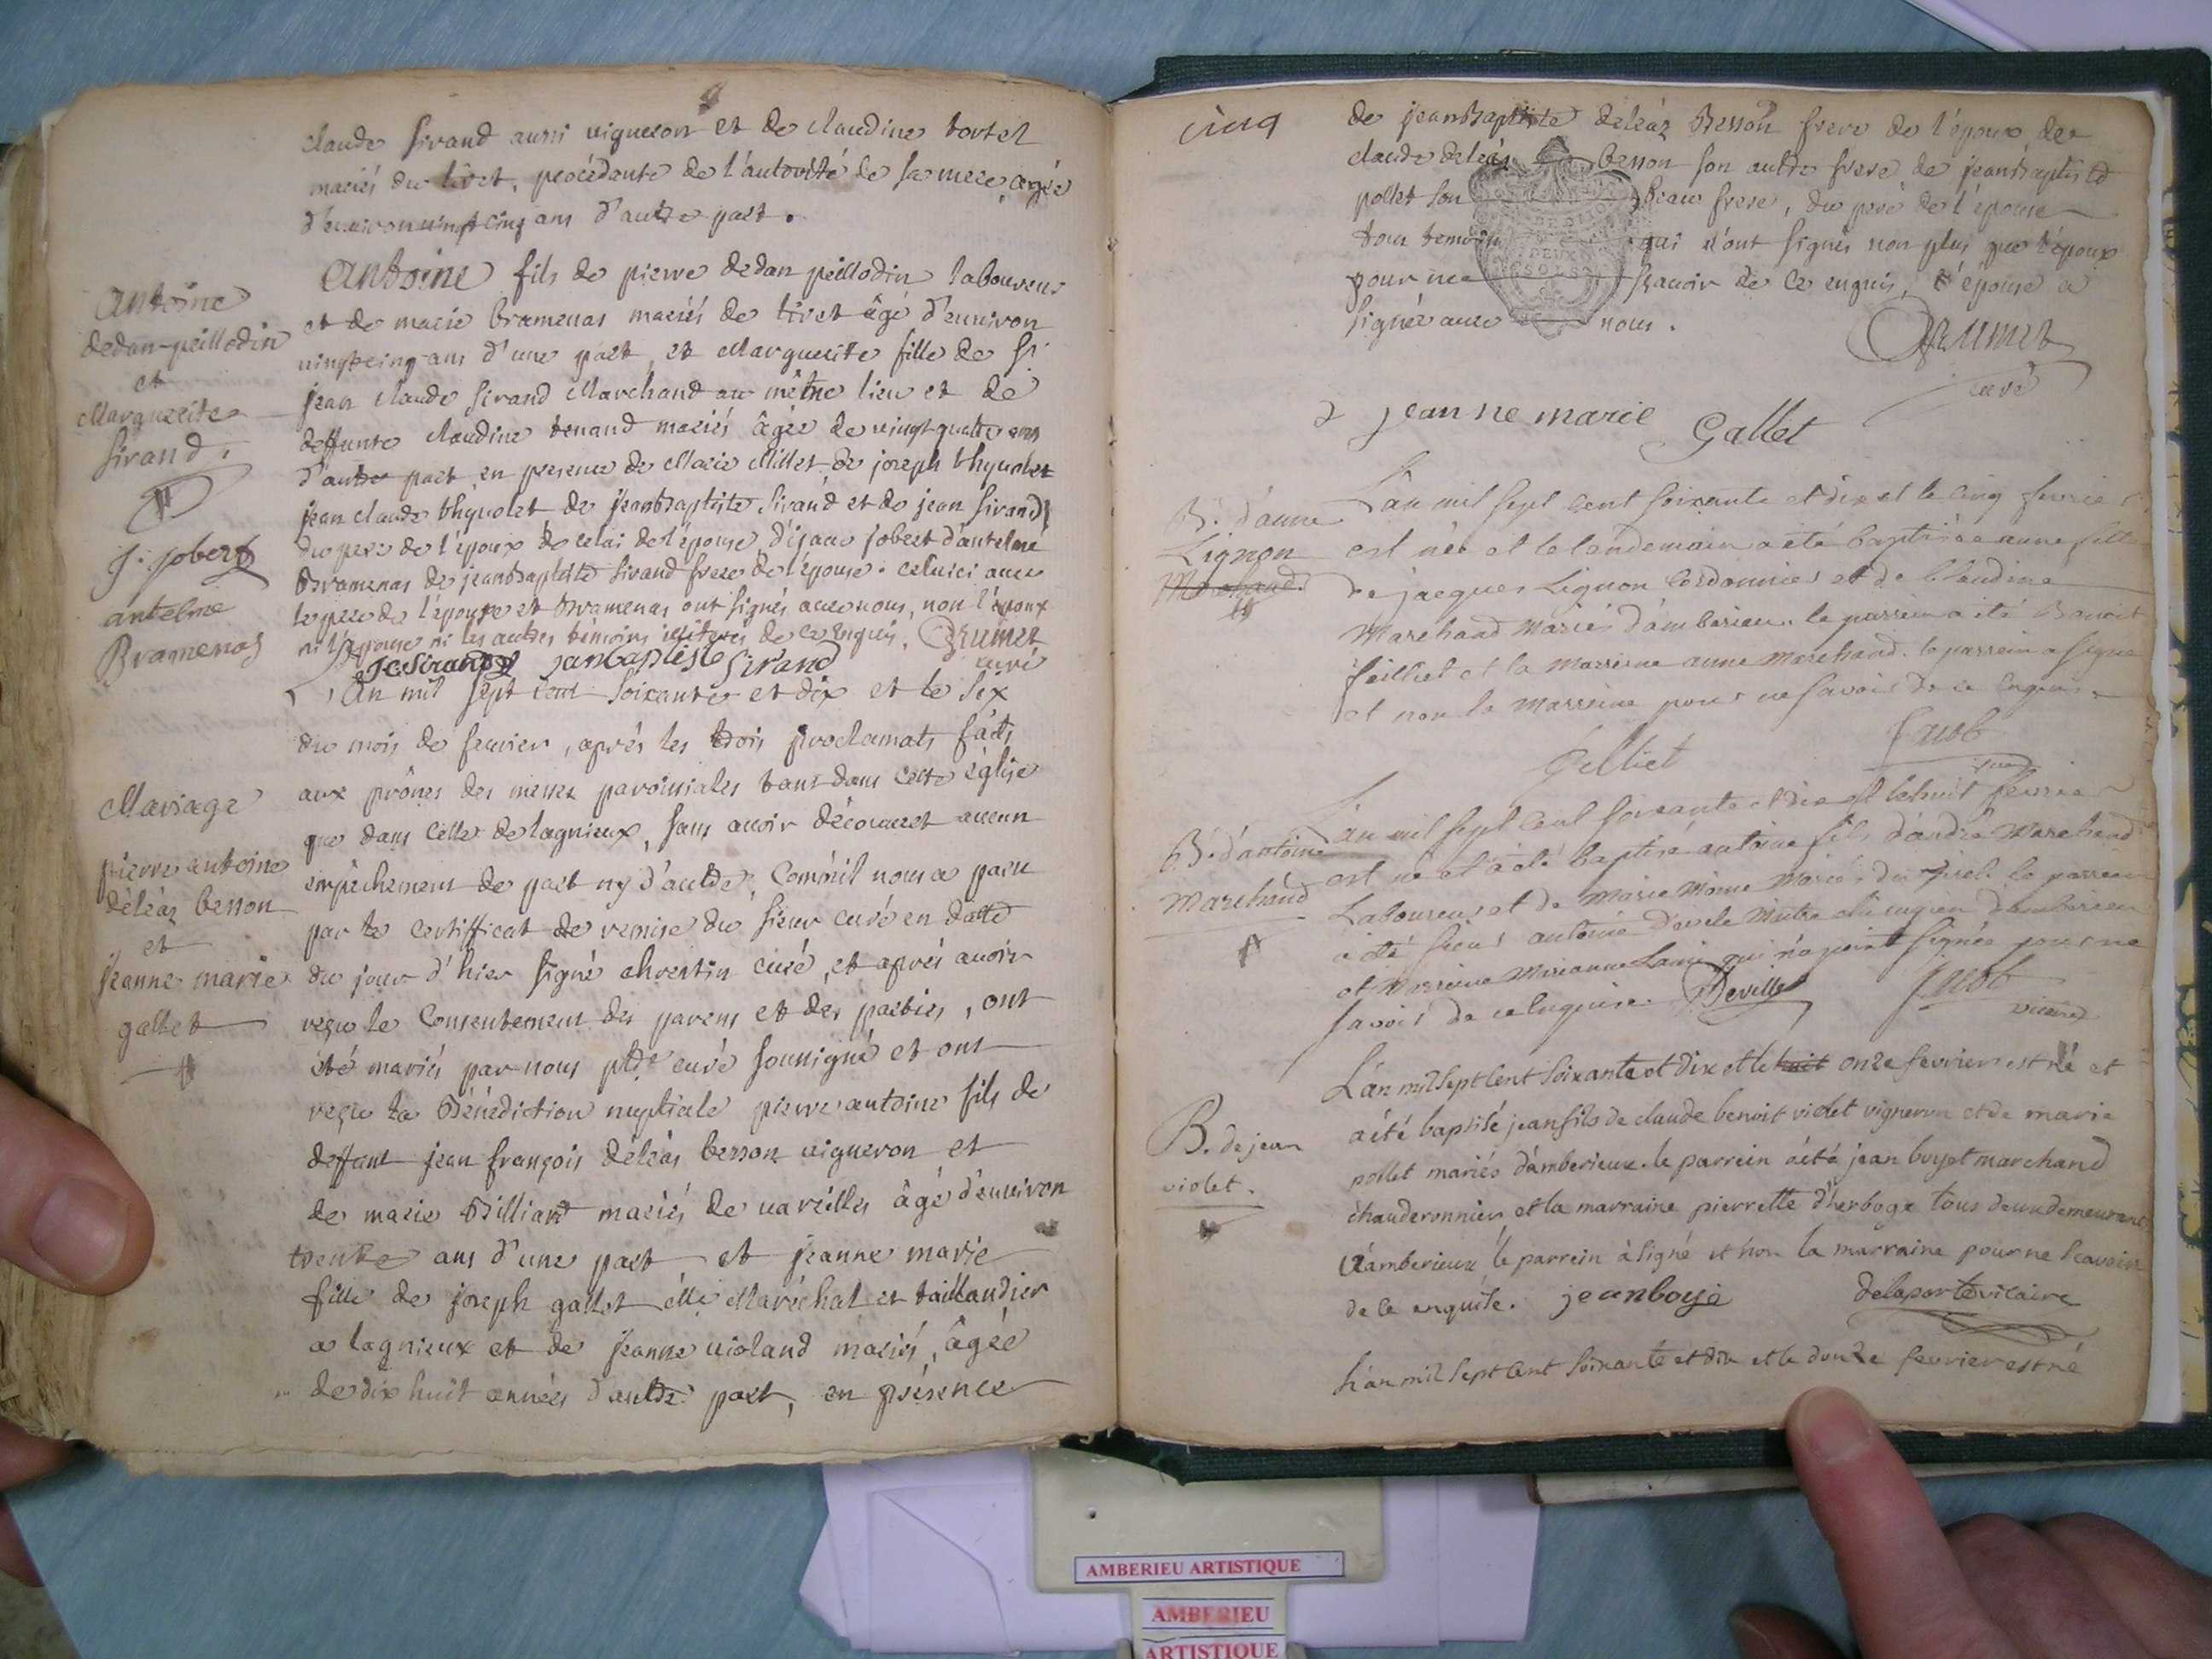 claude sirand aussi vigneron et de claudine tortel
mariés du tiret, procédente de l'autorité de sa mere, agée
d'environ vingt cinq ans d'autre part.
Antoine
dedan-peillodin
et
Marguerite
sirand.
J. jobert
antelme
Bramenas
Antoine fils de pierre dedan peillodin laboureur
et de marie bramenas mariés de tiret âgé d'environ
vingtcinq ans d'une part, et Marguerite fille de sr
jean claude sirand Marchand au même lieu et de
deffunte claudine tenand mariés âgée de vingt quatre ans
d'autre part en presence de Marie Millet de joseph thynolet
jean claude thynolet de jeanbaptiste sirand et de jean sirand
du pere de l'époux de celui de l'épouse, d'isaac jobert d'antelme
Bramenas de jeanbaptiste sirand frere de l'épouse. celuici avec
le pere de l'épouse et Bramenas ont signés avec nous, non l'époux
ni l'épouse ni les autres témoins illiterés de ce enquis. Grumet
JCSirand janbaptiste Sirand curé
Mariage
pierre antoine
déléaz besson
et
jeanne marie
gallet
L'an mil sept cent soixante et dix et le six
du mois de fevrier, aprés les trois proclamats faits
aux prônes des messes paroissiales tant dans cette église
que dans celle de lagnieux, sans avoir découvert aucun
empêchement de part ny d'autre, comm'il nous a paru
par le certifficat de remise du sieur curé en datte
du jour d'hier signé chrestin curé, et aprés avoir
reçu le consentement des parens et des parties, ont
été mariés par nous ptre curé soussigné et ont
reçu la Bénédiction nuptiale pierre antoine fils de
deffunt jean françois déléas besson vigneron et
de marie Billiard mariés de vareilles âgé d'environ
trente ans d'une part et jeanne marie
fille de joseph gallet Me Maréchal et taillandier
a lagnieux et de jeanne violand mariés, âgée
de dix huit années d'autre part, en présence
cinq
de jeanbaptiste deléaz Besson frere de l'époux de
claude deléas besson son autre frere de jeanbaptiste
pollet son beau frere, du pere de l'épouse
tous temoins qui n'ont signés non plus que l'époux
pour ne sçavoir de ce enquis, l'épouse a
signée avec nous.
DEUX
SOLS
Grumet
curé
jeanne marie Gallet
B. d'anne
Lignon
L'an mil sept cent soixante et dix et le cinq fevrier
est née et le landemain a été baptisée anne fille
de jacques Lignon Cordonnier et de Claudine
Marchand Mariés d'amberieu. le parrein a été Benoit
feilliet et la Marreine anne Marchand. le parrein a signé
et non la Marreine pour ne savoir de ce enquise.
felliet Jacob
vicaire
B. d'antoine
Marchand
L'an mil sept cent soixante et dix et le huit fevrier
est né et a été baptisé antoine fils d'andré Marchand
Laboureur et de Marie Mariés du le parrein
a été sieur antoine Deville Maitre chirurgien d'amberieu
et Marreine Marianne qui n'a point signée pour ne
savoir de ce enquise. Deville Jacob
vicaire
B. de jean
violet.
L'an mil sept cent soixante et dix et le huit onze fevrier est né et
a été baptisé jean fils de claude benoit violet vigneron et de marie
pollet mariés d'amberieux. le parrein a été jean boyet marchand
chauderonnier et la marraine pierrette d'herboge tous deux demeurans
a amberieux le parrein à signé et non la marraine pour ne scavoir
de ce enquise. jeanboye delaporte vicaire
L'an mil sept cent soixante et dix et le douze fevrier est né
AMBERIEU ARTISTIQUE
AMBERIEU
ARTISTIQUE